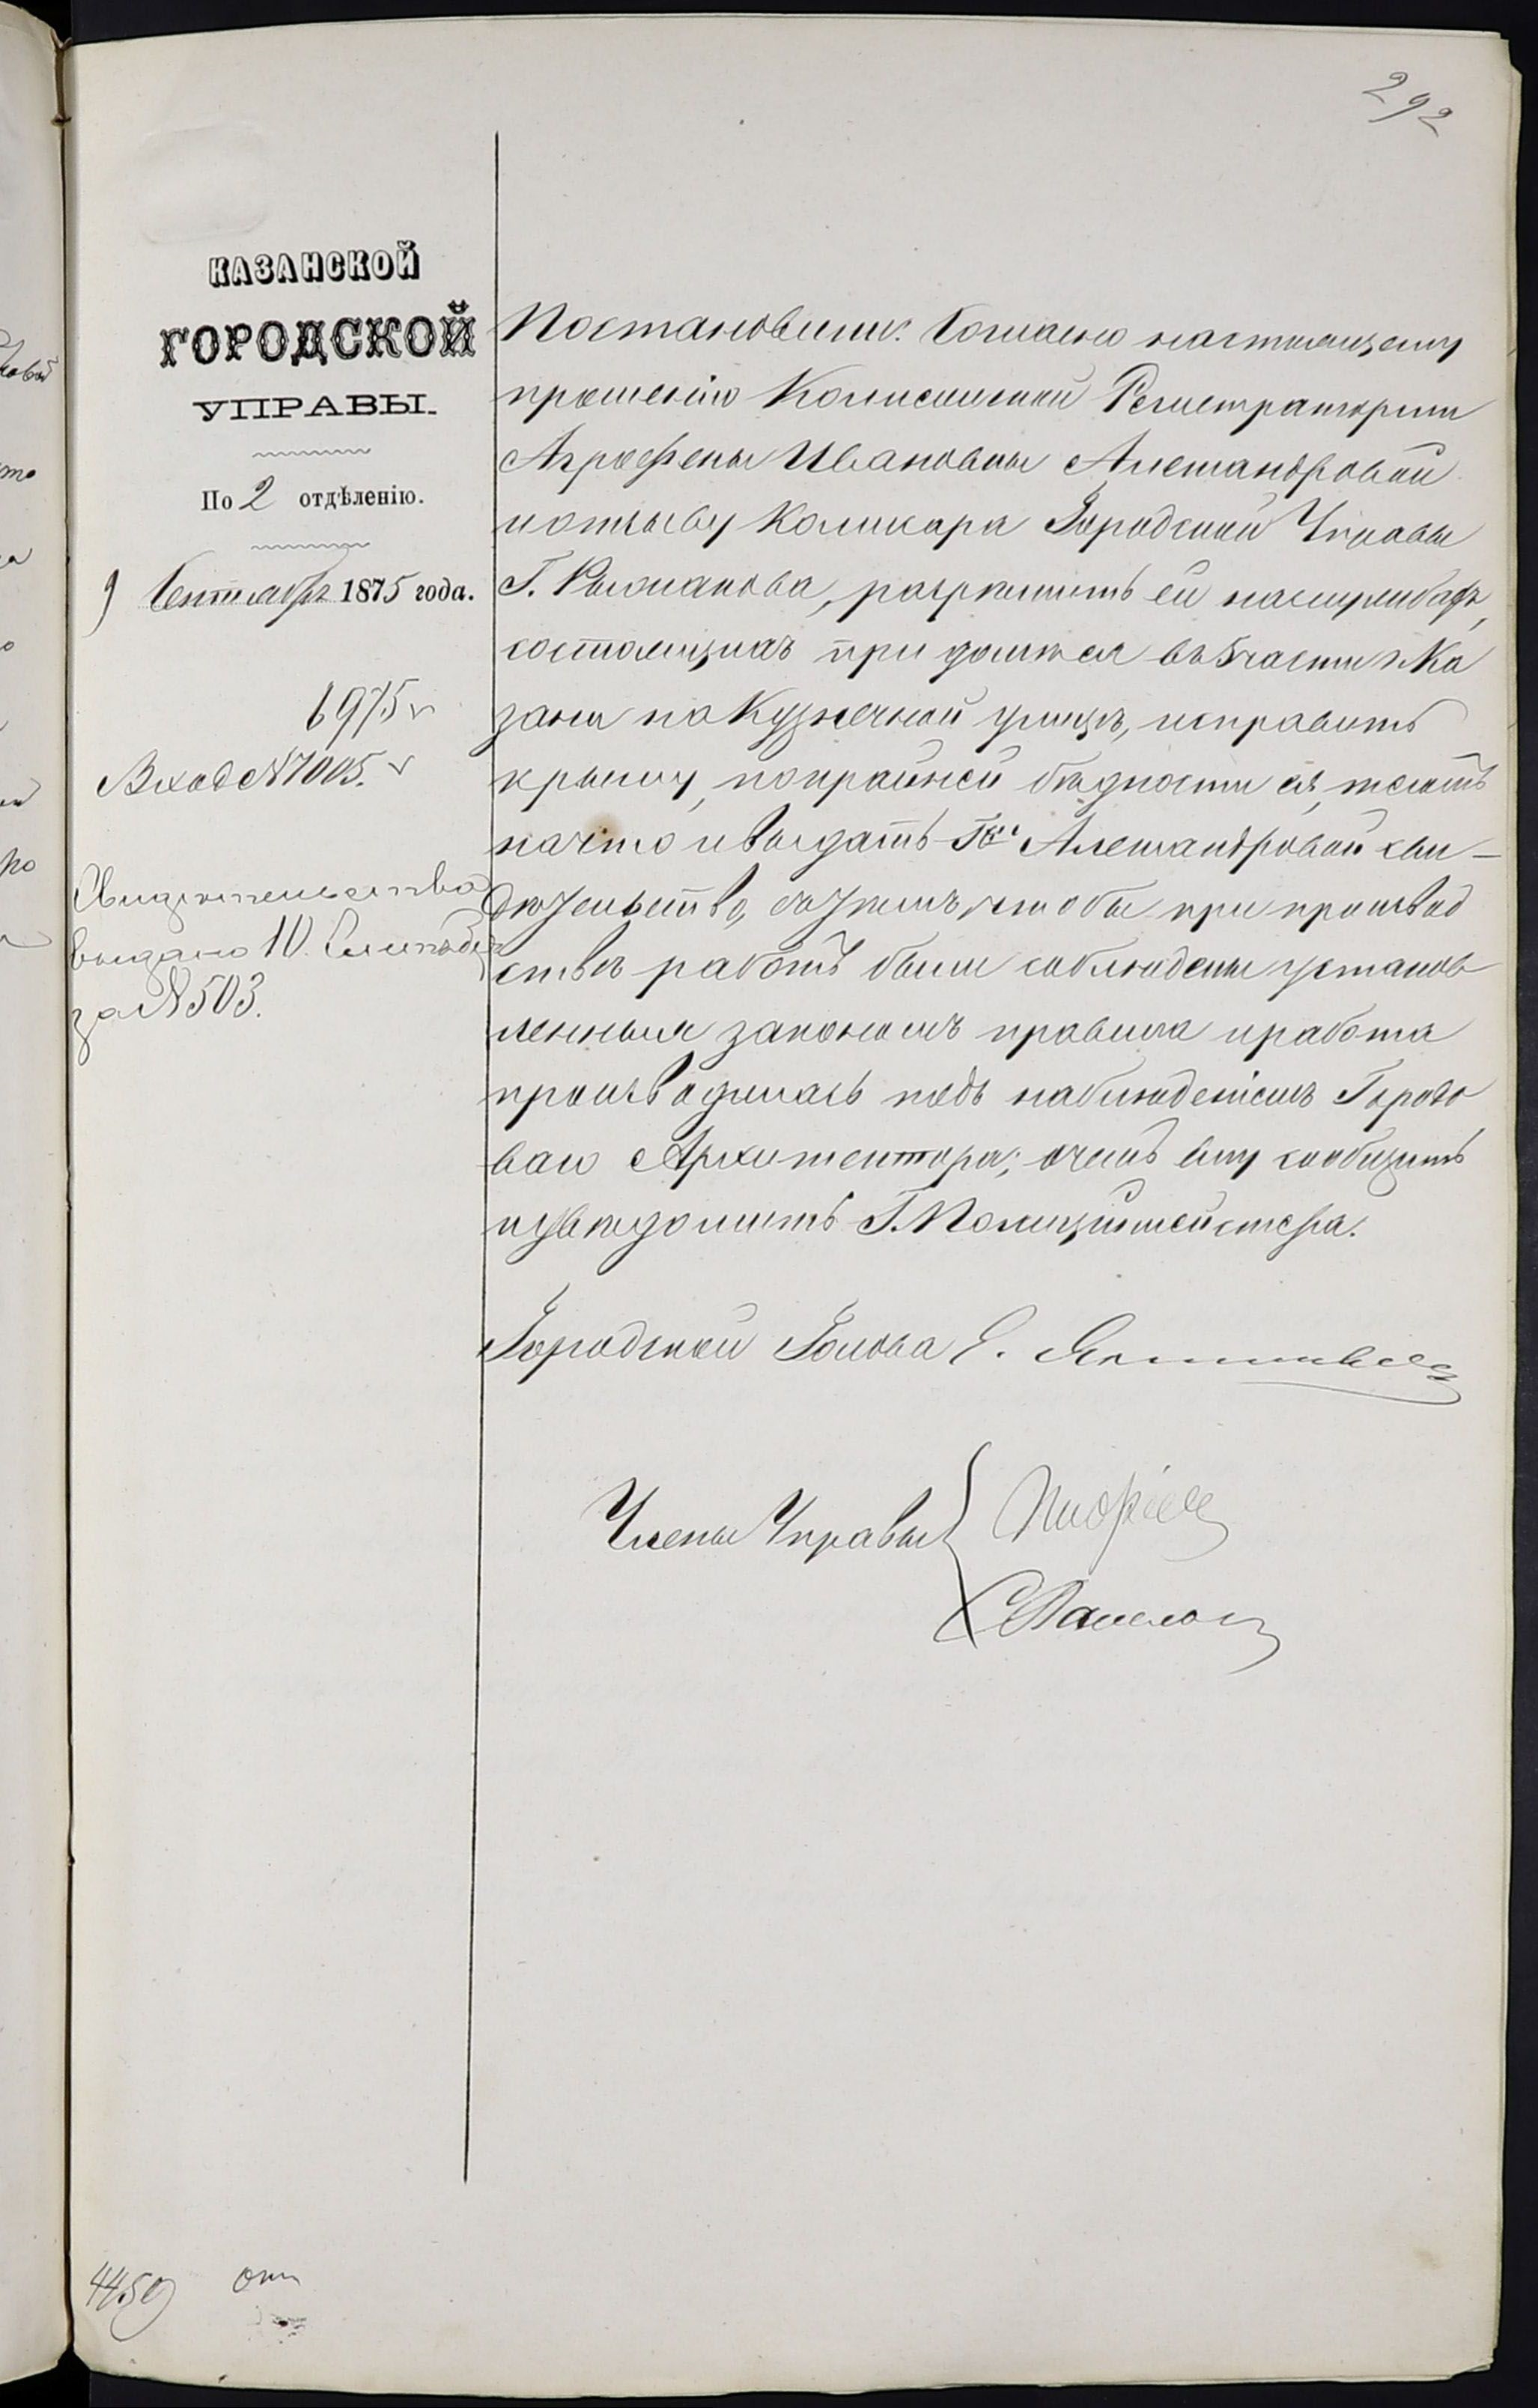 292
КАЗАНСКОЙ
ГОРОДСКОЙ
УПРАВЫ.
По 2 отдѣленію.
9 Сентября 1875 года.
6975
Вход №7005.
Свидѣтельство
выдано 10 Сентяб
за №503.
Постановили: Согласно настоящему
прошенію Колежской Регистраторши
Агрофены Ивановны Александровой
и отзыву Комисара Городской Управы
Г. , разрѣшить ей на службахъ,
состоящихъ при домѣ ея въ 5 части г. Ка
зани на Кузнечной улицѣ, исправить
крышу, по крайней бѣдности ея, тесомъ
на что и выдать Г<sup>жѣ</sup> Александровой сви-
дѣтельство, съ тѣмъ, чтобы при производ
ствѣ работъ были соблюдены установ
ленныя закономъ правила и работа
производилась подъ наблюденіемъ Городо
ваго Архитектора; о чемъ ему сообщить
и увѣдомить Г. Полицiймейстера.
Городской Голова Е.
Члены Управы
4459
отп